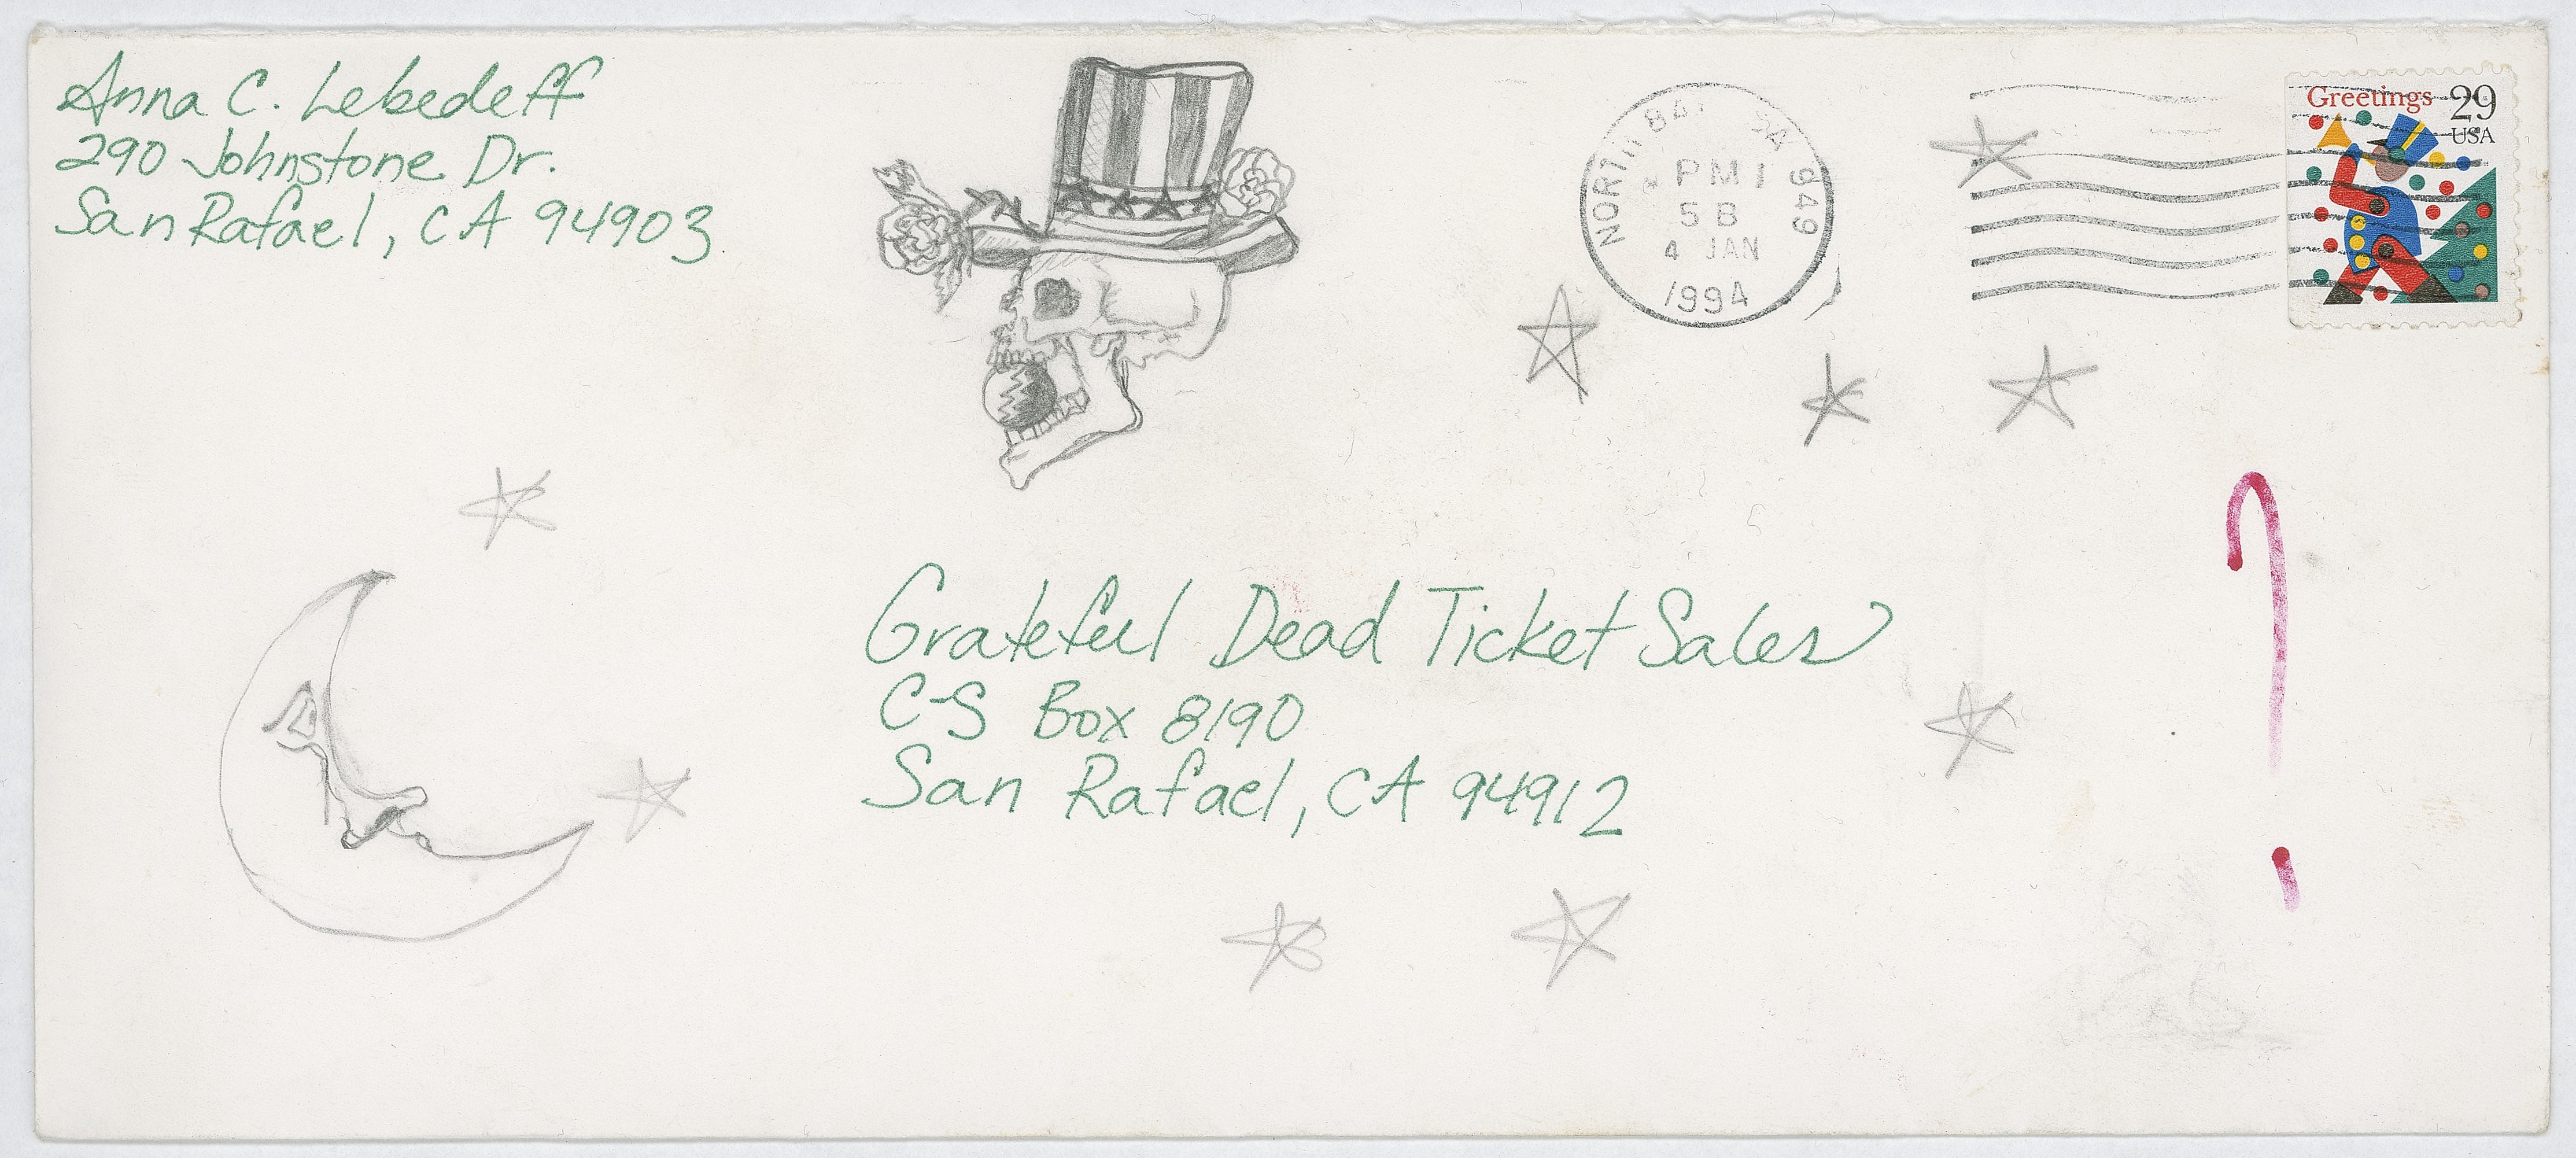 Anna C. Lebedeff
290 Johnstone Dr.
San Rafael, CA 94903
NORTH BAY CA 949
PM 1
5B
4 JAN
1994
Greetings 29
USA
Grateful Dead Ticket Sales
C-S Box 8190
San Rafael, CA 94912
?